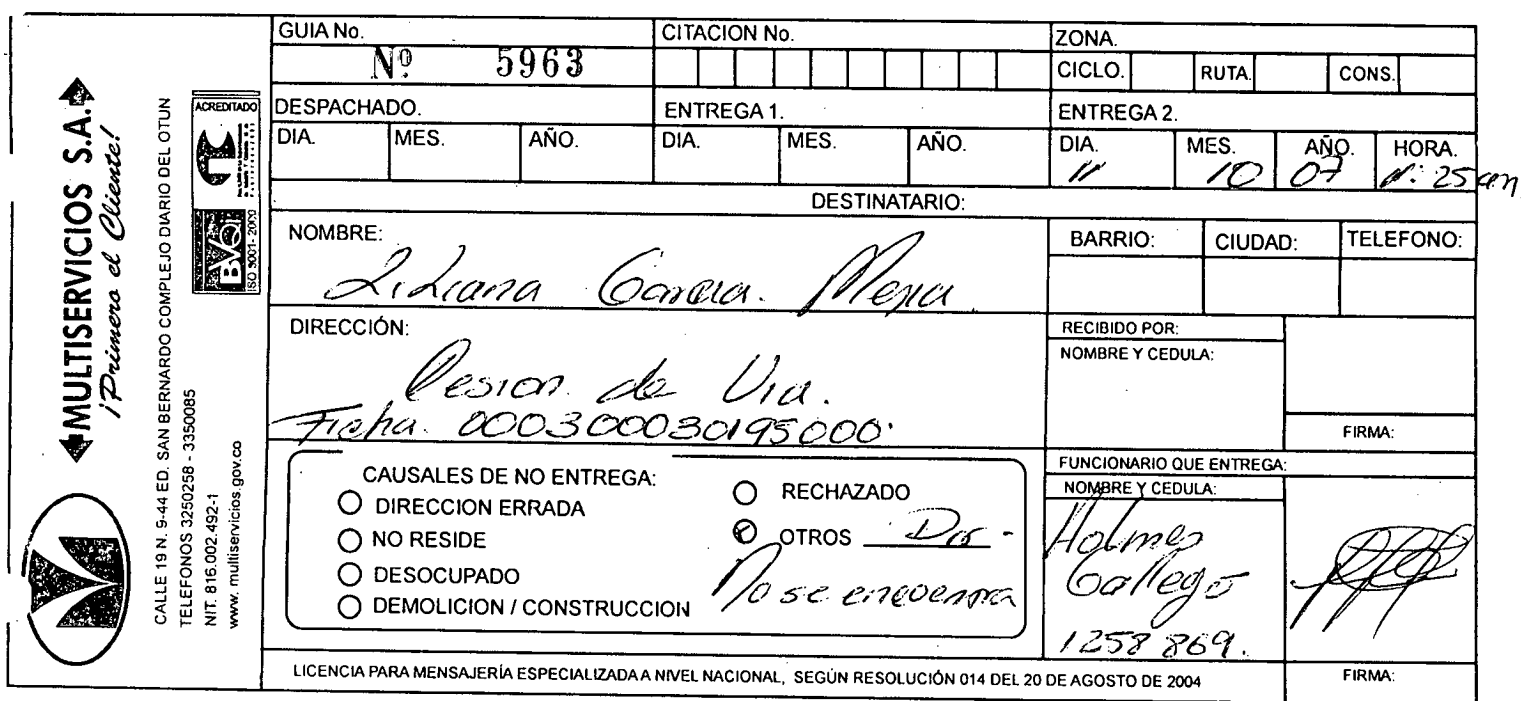 MULTISERVICIOS S.A.
¡Primero el Cliente!
CALLE 19 N. 9-44 ED. SAN BERNARDO COMPLEJO DIARIO DEL OTUN
TELEFONOS 3250258 - 3350085
NIT. 816.002.492-1
www. multiservicios.gov.co
ACREDITADO
BVQI
ISO 9001- 2000
GUIA No.
Nº 5963
CITACION No.
ZONA.
CICLO. RUTA. CONS.
DESPACHADO. ENTREGA 1. ENTREGA 2.
DIA. MES. AÑO. DIA. MES. AÑO. DIA. MES. AÑO. HORA.
11 10 07 :25 am
DESTINATARIO:
NOMBRE:
Liliana Garcia. Mejia.
BARRIO: CIUDAD: TELEFONO:
DIRECCIÓN:
de Via.
Ficha. 000300030195000.
RECIBIDO POR:
NOMBRE Y CEDULA:
FIRMA:
CAUSALES DE NO ENTREGA:
DIRECCION ERRADA
NO RESIDE
DESOCUPADO
DEMOLICION / CONSTRUCCION
RECHAZADO
OTROS
No se encuentra
FUNCIONARIO QUE ENTREGA:
NOMBRE Y CEDULA:
Holmes
Gallego
1258 869.
FIRMA:
LICENCIA PARA MENSAJERÍA ESPECIALIZADA A NIVEL NACIONAL, SEGÚN RESOLUCIÓN 014 DEL 20 DE AGOSTO DE 2004